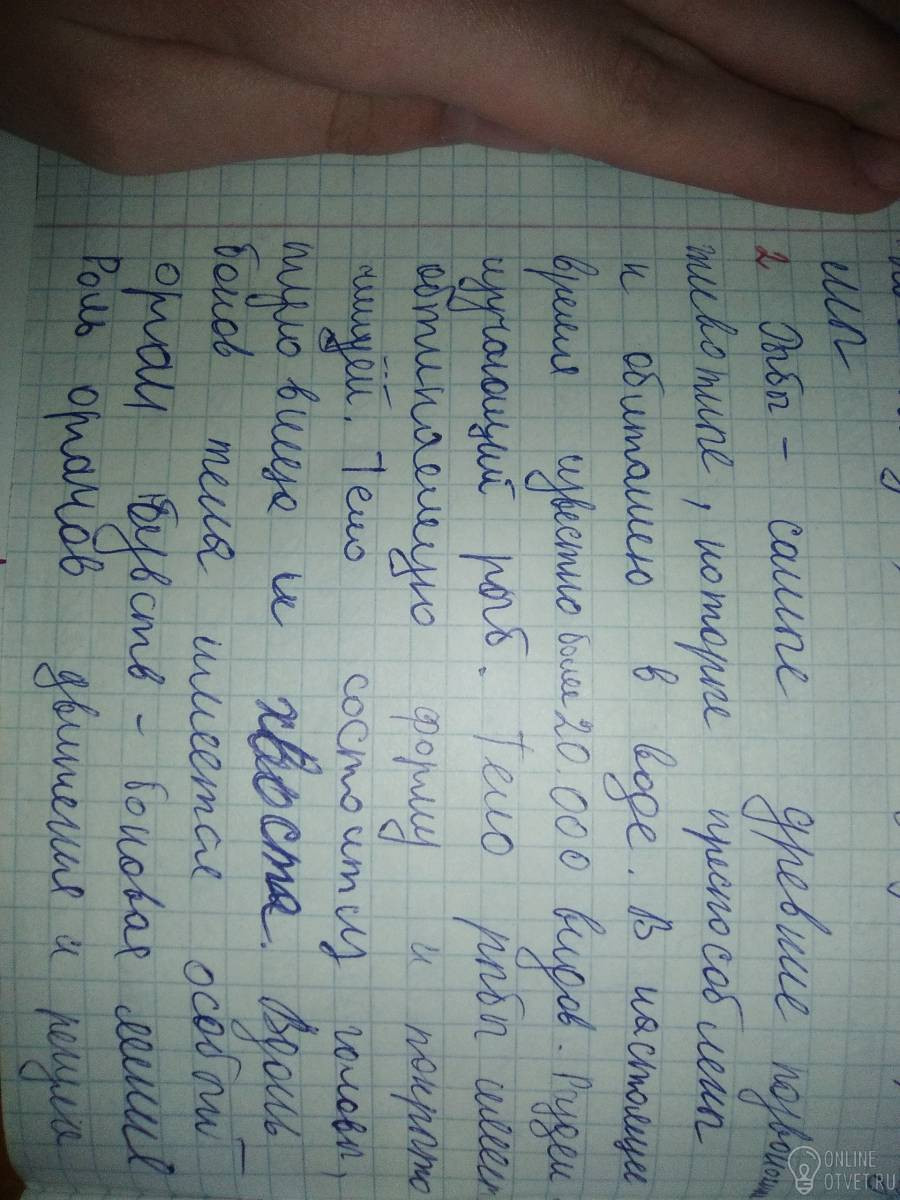 2 Рыбы - самые древние позвоноч
животные, которые приспособлены
к обитанию в воде. В настоящее
время известно более 20.000 видов.
изучающий рыб. Тело рыбы имеет
обтикаемую форму и покрыто
чишуёй. Тело состоит из головы,
туловища и хвоста. Вдоль
боков тела имеется особый
орган чувств - боковая линия
Роль органов движения и регуля
ONLINE
OTVET.RU